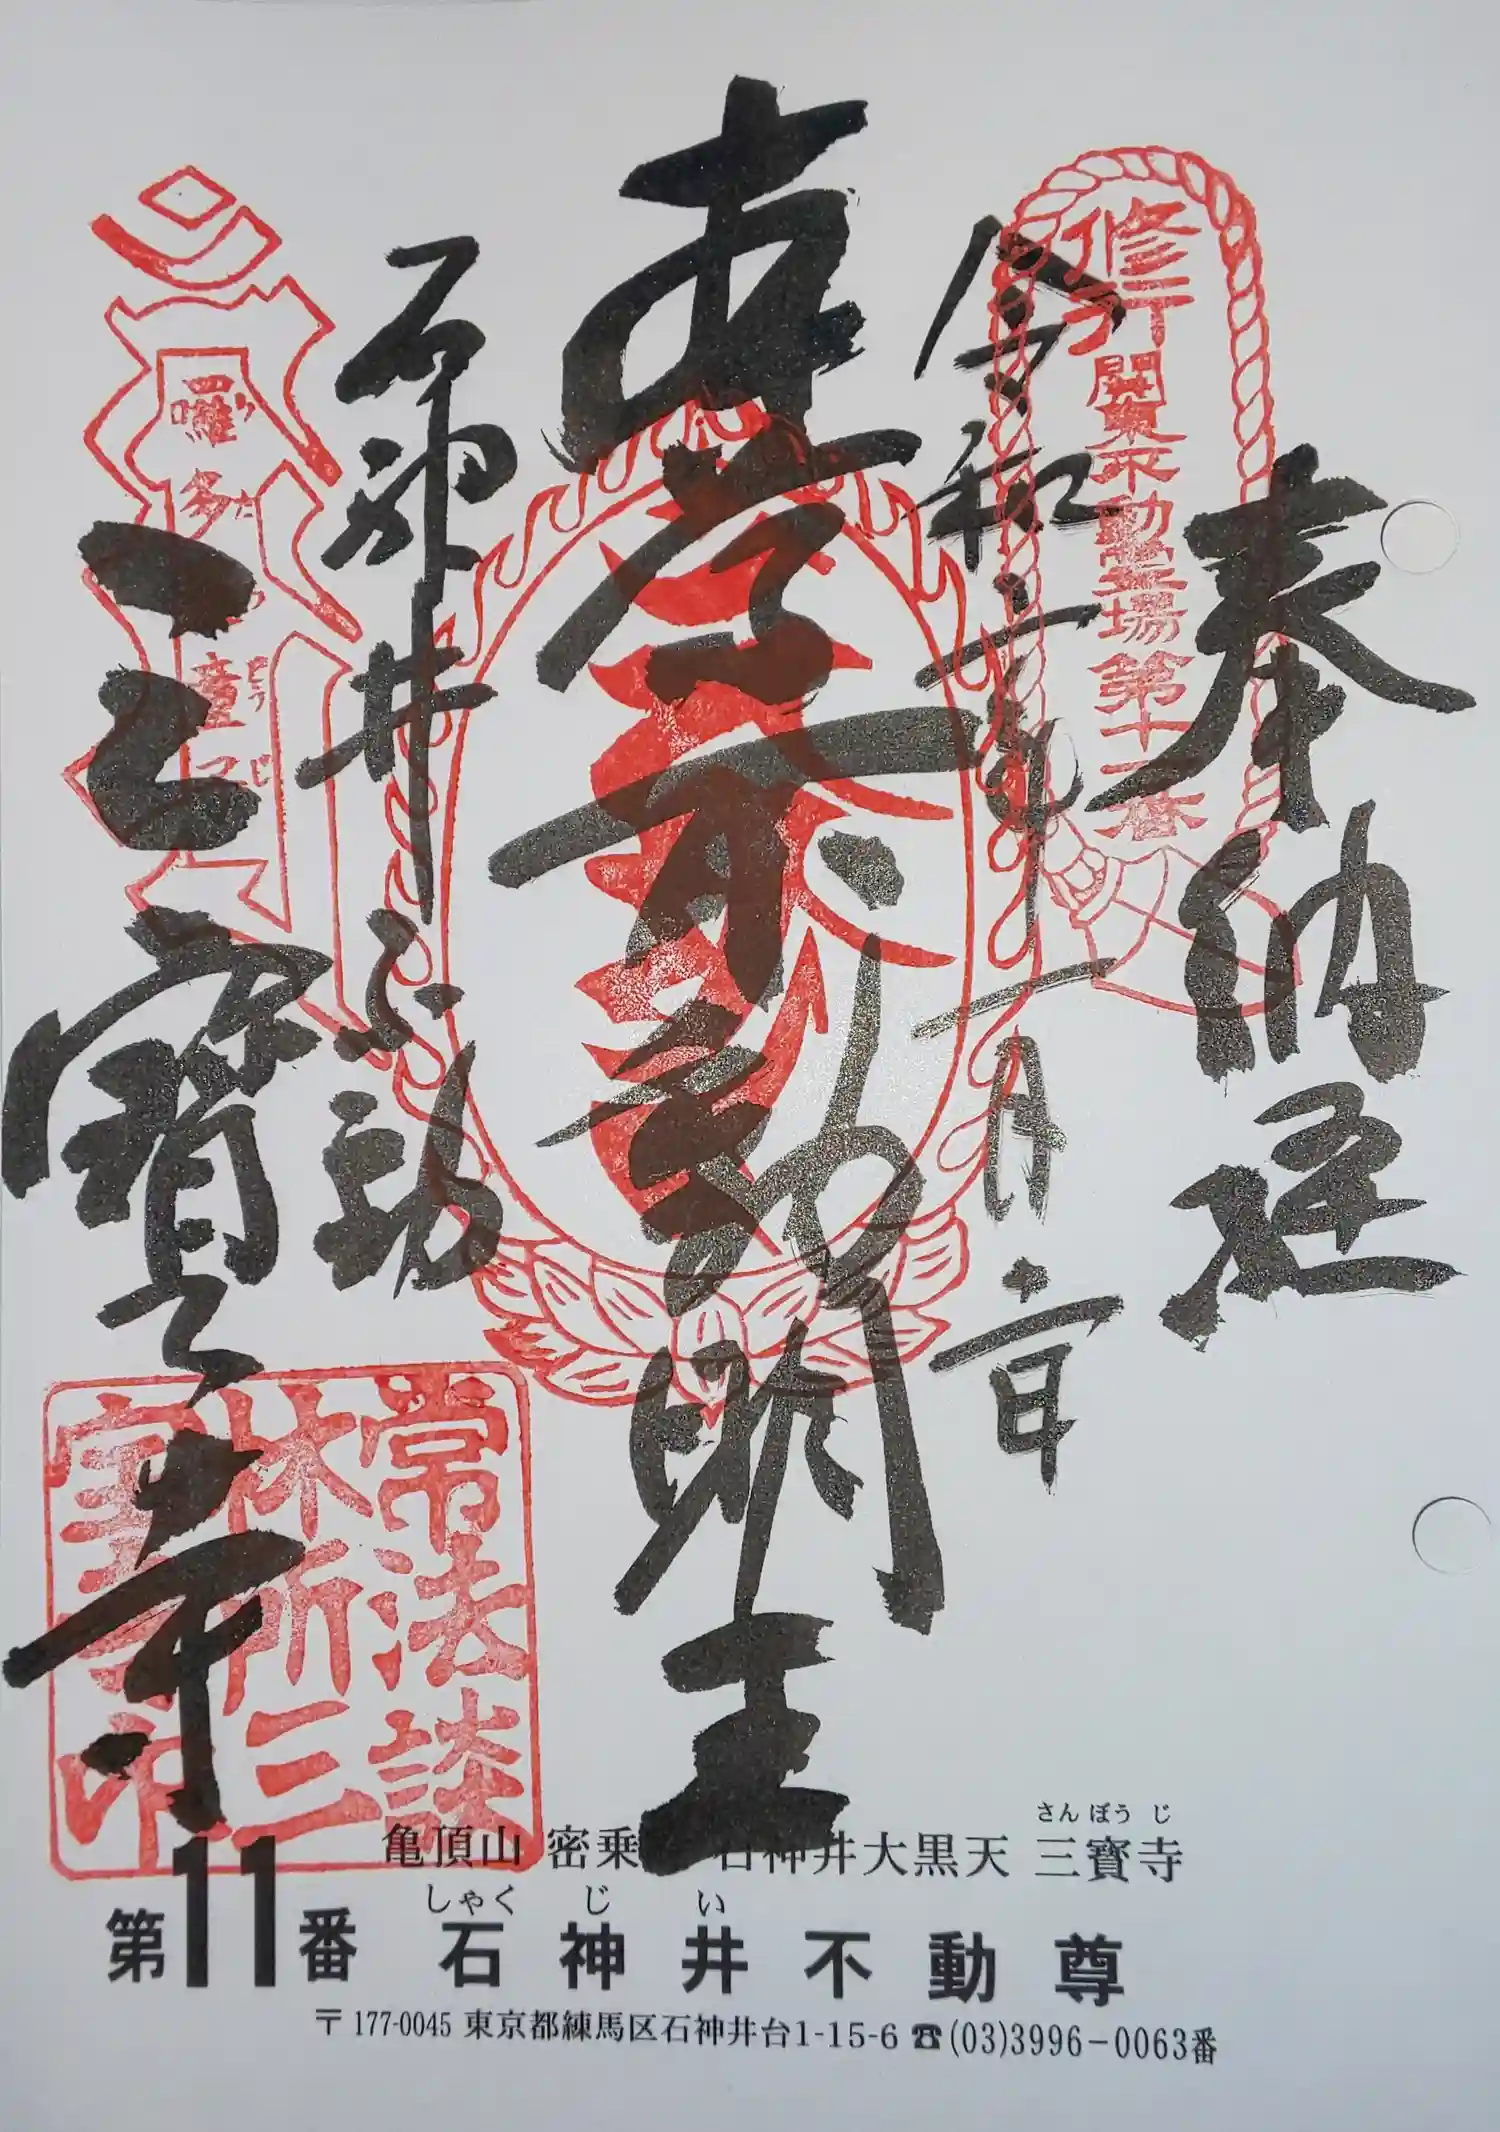 奉納経
令和二年一月
修行
関東不動霊場第十一番
不動明王
石神井不動
三寳寺
童子
どうじ
常法談
林所三
寳寺印
さんぼうじ
亀頂山 密乗 石神井大黒天 三寳寺
しゃくじい
第11番 石神井不動尊
〒177-0045 東京都練馬区石神井台1-15-6 ☎(03)3996-0063番